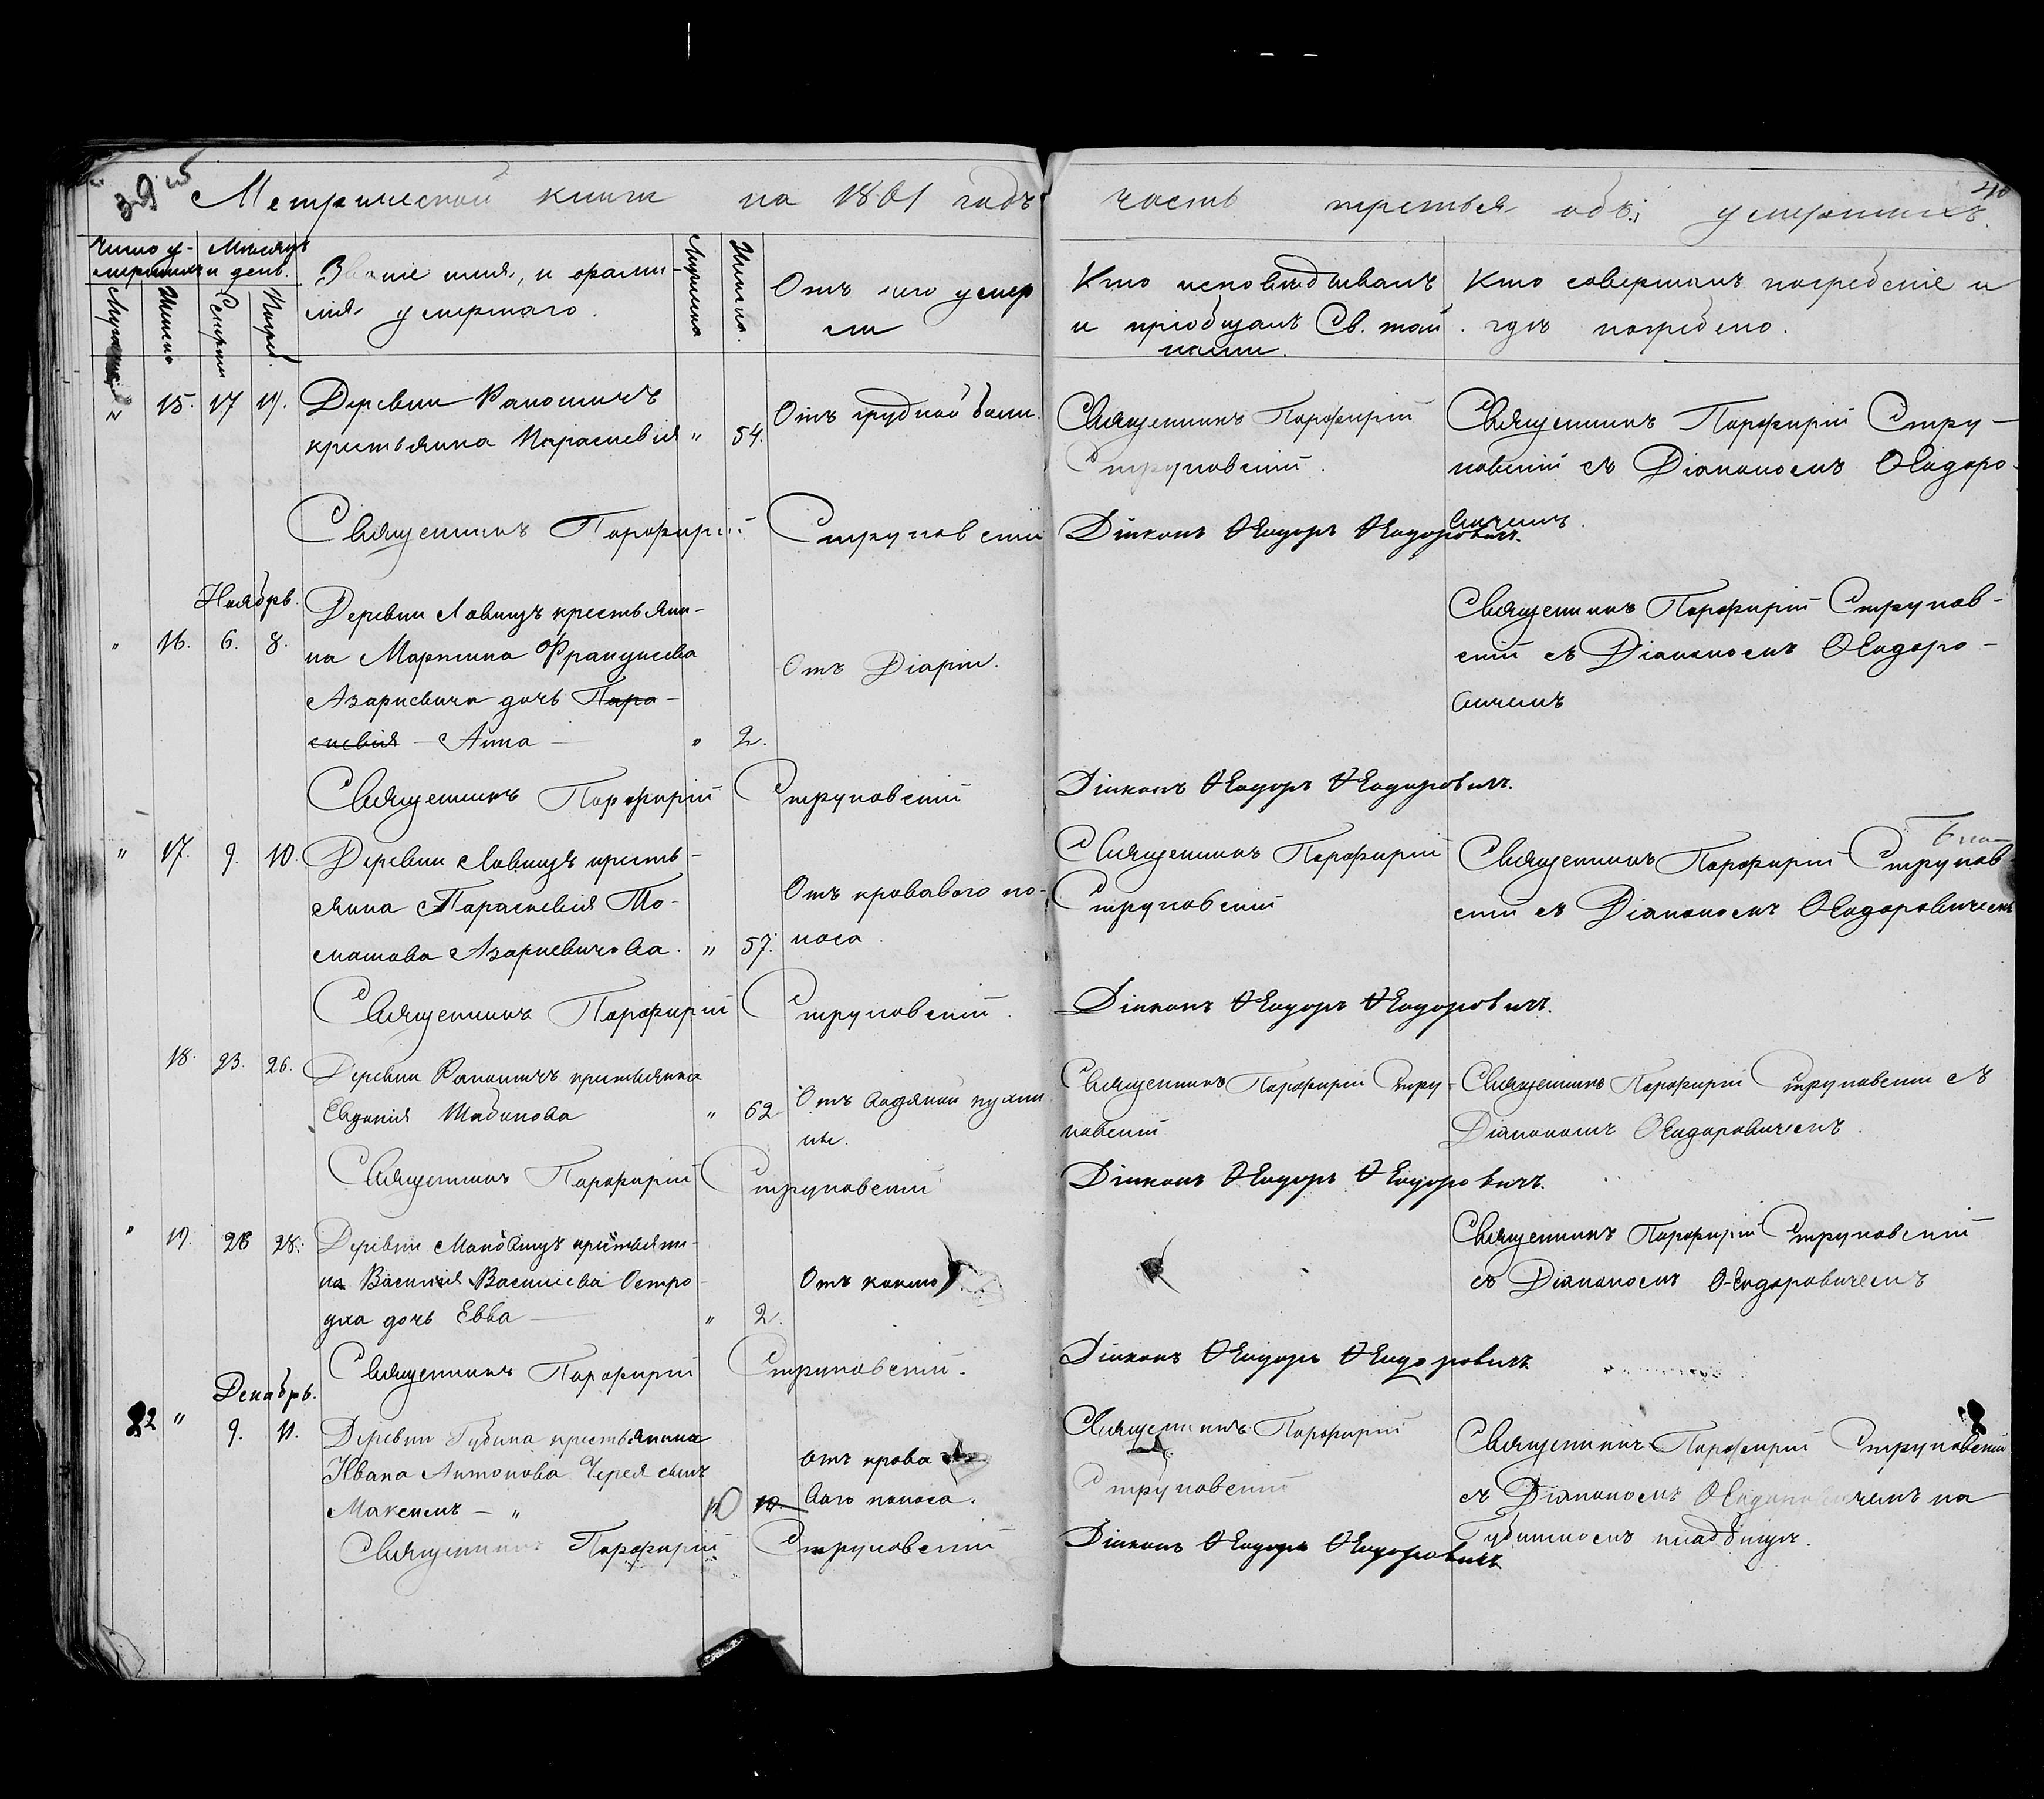 39
Метрической книги на 1861 годъ часть третья объ умершихъ
40
Число у-
мершихъ
Мѣсяцъ
и день.
Званіе имя, и фами-
лія умершаго.
Мужеска
Женска.
Отъ чего умер
ли
Кто исповѣдывалъ
и пріобщалъ Св. тай
нами.
Кто совершалъ погребеніе и
гдѣ погребено.
Женска
Смерти
Погреб.
" 15. 17 19. Деревни
крестьянка Параскевія " 54.
Отъ грудной боли.
Священникъ Порфирій
Струповскій.
Священникъ Порфирій Стру-
повскій съ Діакономъ Ѳеодоро-
вичемъ.
Священникъ Порфирій Струповскій Діаконъ Ѳеодоръ Ѳеодоровичъ.
Ноябрь.
" 16. 6. 8. Деревни Ловищъ крестьяни-
на Мартина Францисева
Азаркевича дочь Пара-
скевія - Анна - " 2.
Отъ Діаріи.
Священникъ Порфирій Струпов-
скій съ Діакономъ Ѳеодоро-
вичемъ
Священникъ Порфирій Струповскій Діаконъ Ѳеодоръ Ѳеодоровичъ.
" 17. 9. 10. Деревни Ловищъ кресть-
янка Параскевія То-
машова Азаркевичова. " 57.
Отъ кроваваго по-
носа.
Священникъ Порфирій
Струповскій
Священникъ Порфирій Струпов
скій съ Діакономъ Ѳеодоровичемъ
Священникъ Порфирій Струповскій. Діаконъ Ѳеодоръ Ѳеодоровичъ.
18. 23. 26. Деревни крестьянка
Евдокія Шабанова " 62
Отъ водяной пухли
ны.
Священникъ Порфирій Стру-
повскій
Священникъ Порфирій Струповскій съ
Діакономъ Ѳеодоровичемъ.
Священникъ Порфирій Струповскій Діаконъ Ѳеодоръ Ѳеодоровичъ.
" 19. 26 28. Деревни крестьяни-
на Василія Василіева Остро-
уха дочь Евва - " 2.
Отъ
Священникъ Порфирій Струповскій
съ Діакономъ Ѳеодоровичемъ
Священникъ Порфирій Струповскій. Діаконъ Ѳеодоръ Ѳеодоровичъ
Декабрь.
22 " 9. 11. Деревни Губина крестьянина
Ивана Антонова Черея сынъ
Максимъ - " 10 10
отъ крова
ваго поноса.
Священникъ Порфирій
Струповскій
Священникъ Порфирій Струповскій
съ Діакономъ Ѳеодоровичемъ на
Губинскомъ кладбищѣ.
Священникъ Порфирій Струповскій Діаконъ Ѳеодоръ Ѳеодоровичъ